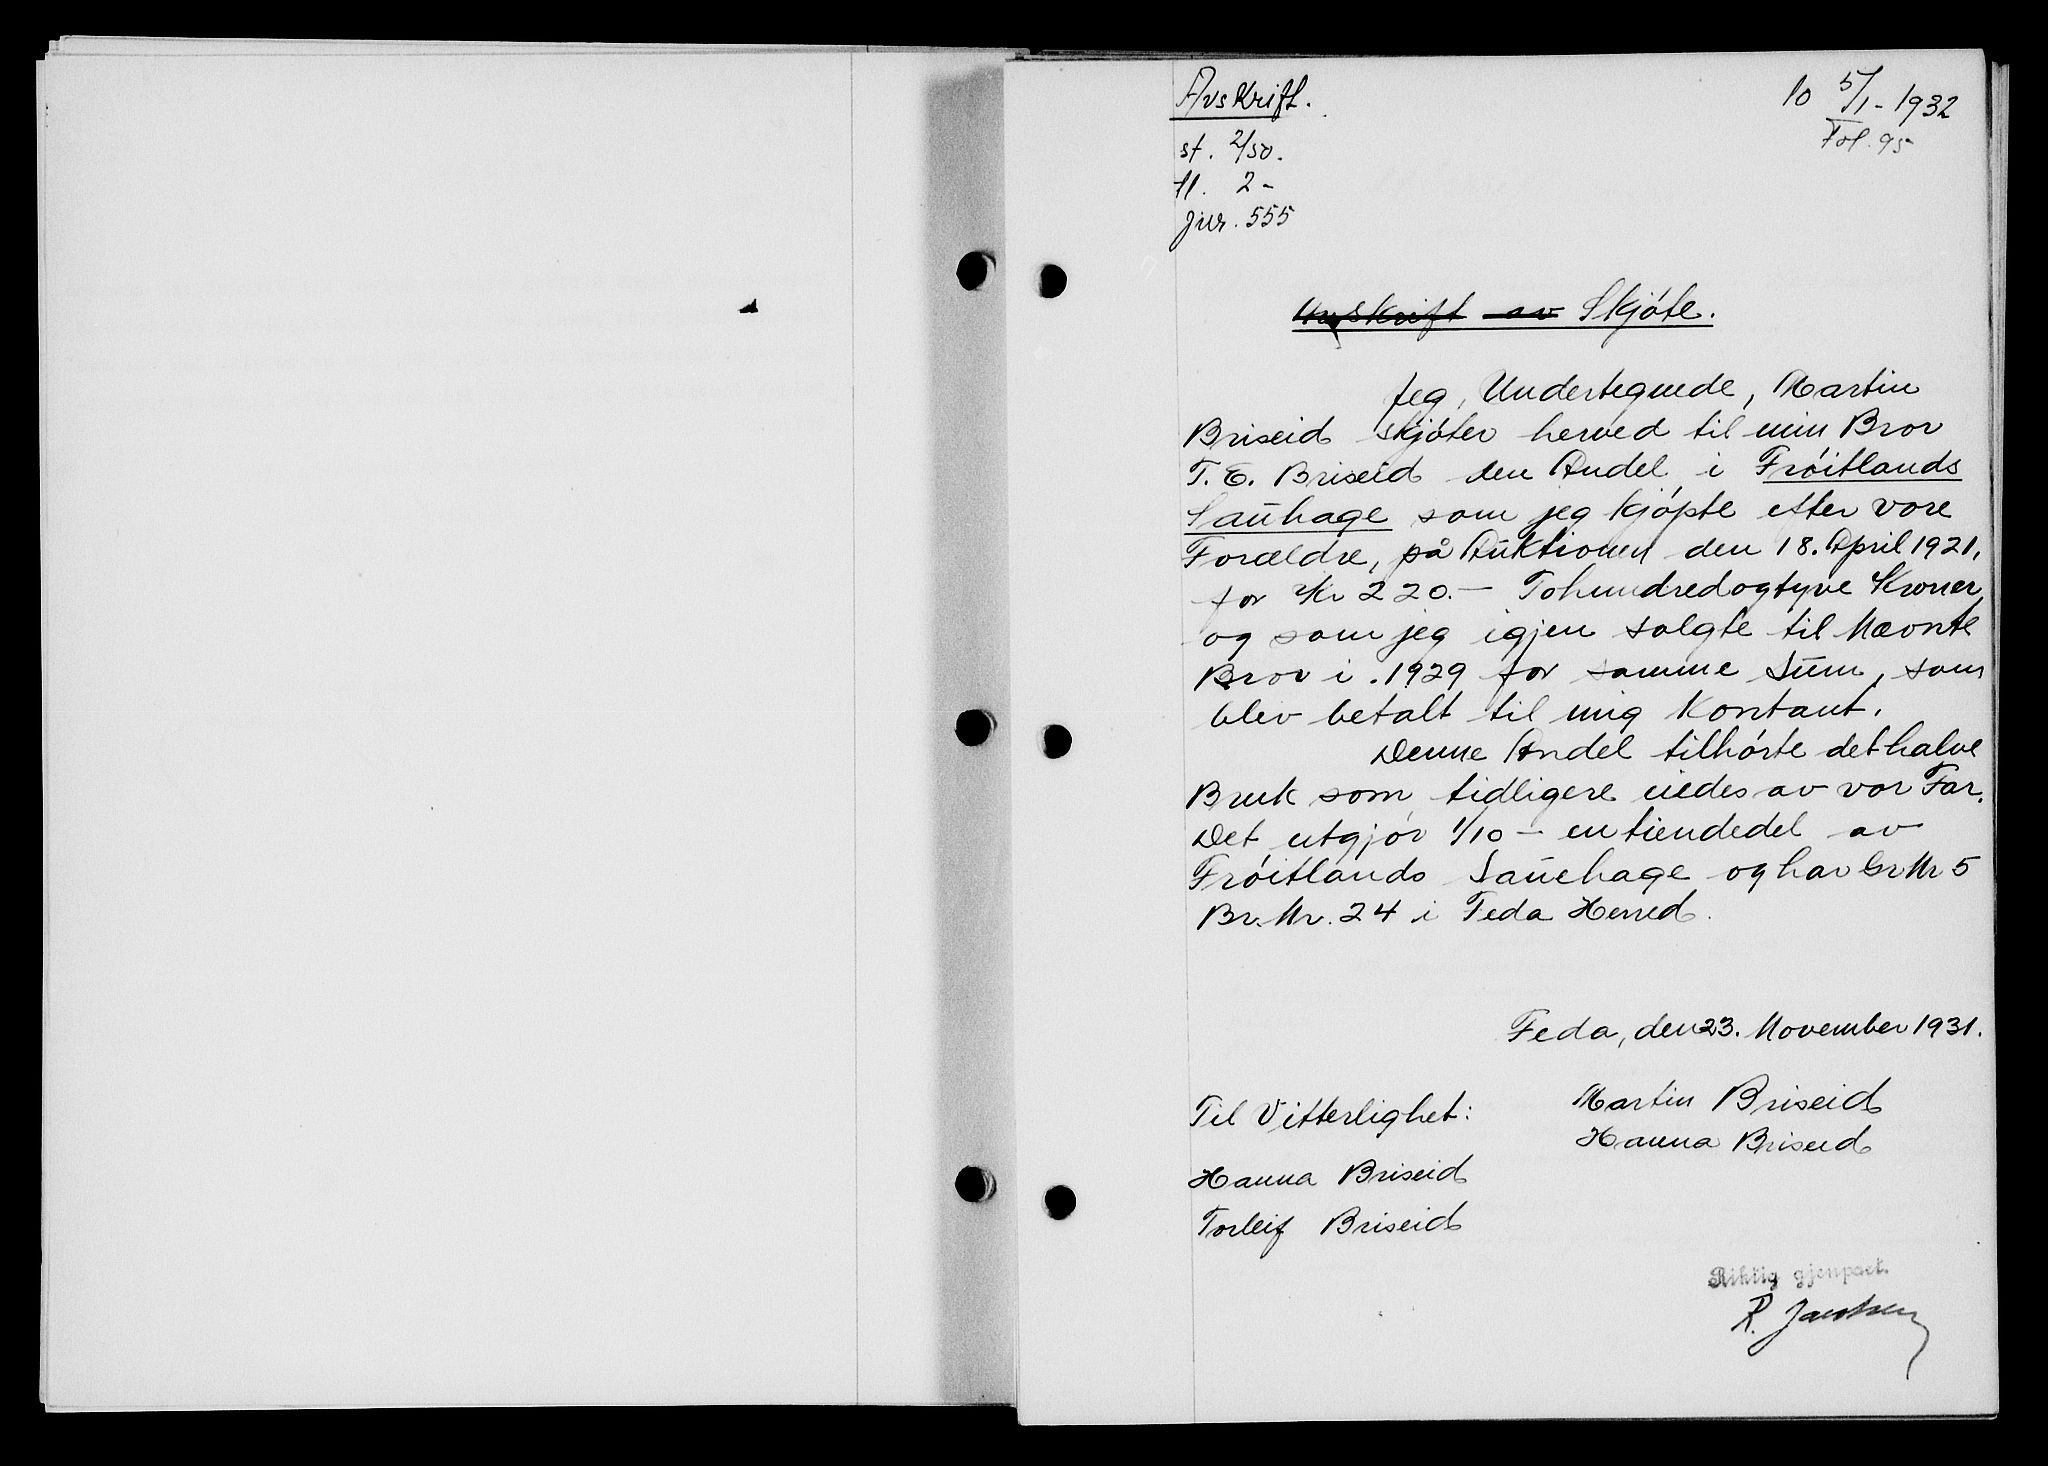 Avskrift.
10 5/1-1932
Fol. 95
st. 2/50.
tl. 2-
jur. 555
Avskrift av Skjöte.
Jeg, Undertegnede, Martin
Briseid skjöter herved til min Bror
T. E. Briseid den Andel i Fröitlands
Sauhage som jeg kjöpte etter vore
Forældre, på Auktionen den 18. April 1921,
for Kr 220.- Tohundredogtyve Kroner,
og som jeg igjen solgte til Nævnte
Bror i. 1929 for samme Sum, som
blev betalt til mig Kontant.
Denne Andel tilhörte det halve
Bruk som tidligere eiedes av vor Far.
Det utgjör 1/10 - en tiendedel av
Fröitlands Sauehage og har Gr Nr 5
Br. Nr. 24 i Feda Herred.
Feda, den 23. November 1931.
Til Vitterlighet:
Martin Briseid
Hanna Briseid
Hanna Briseid
Torleif Briseid
Riktig gjenpart.
R. Jacobsen